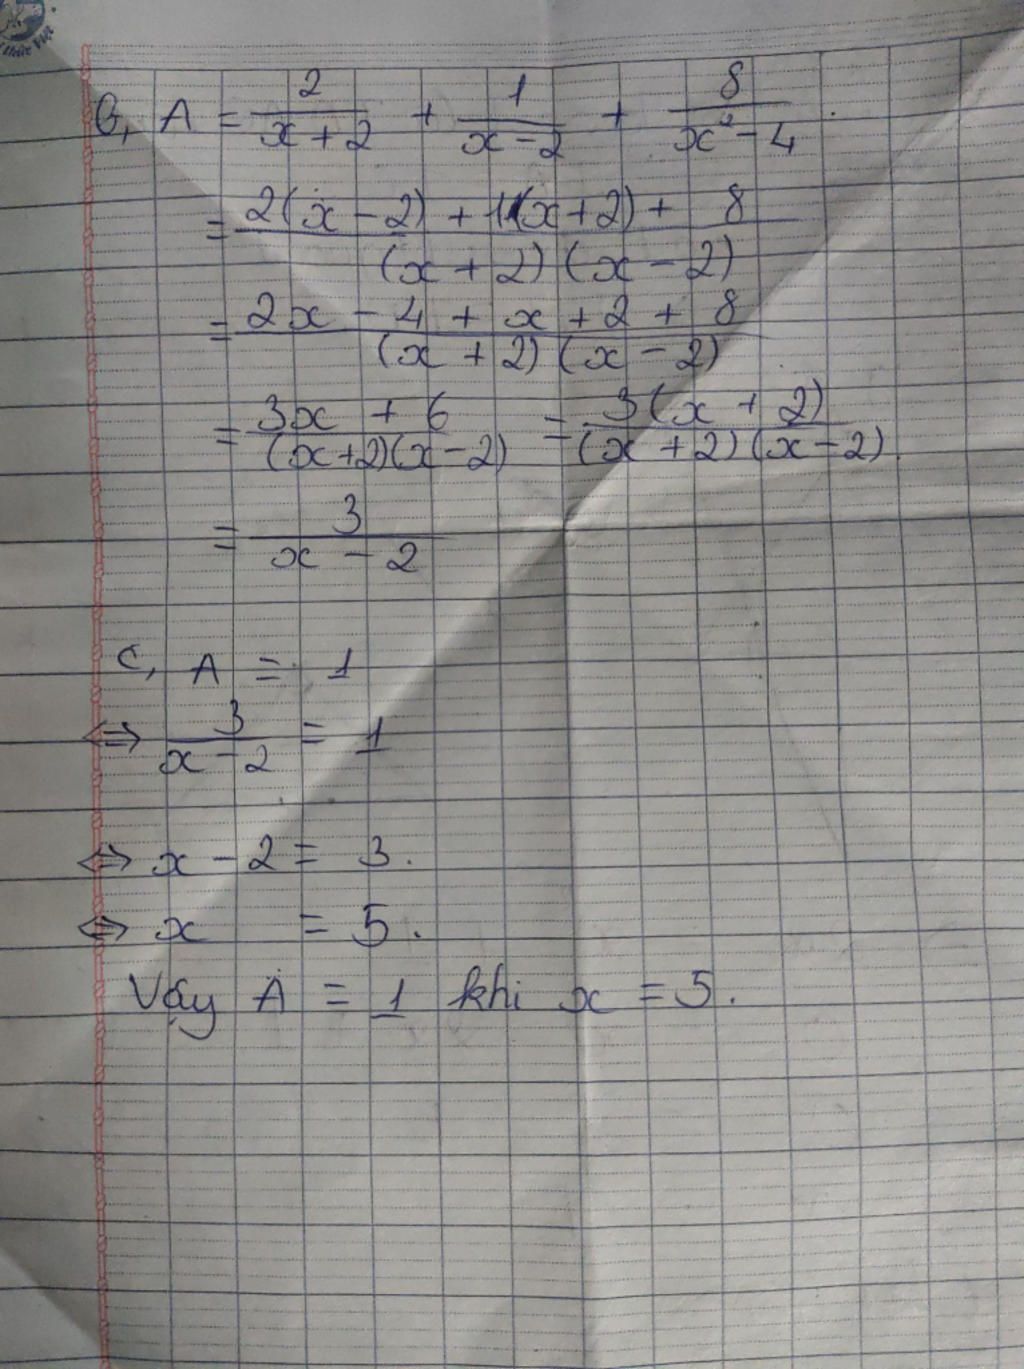 b, A = 2/(x + 2) + 1/(x - 2) + 8/(x² - 4).
= (2(x - 2) + 1(x + 2) + 8)/((x + 2)(x - 2))
= (2x - 4 + x + 2 + 8)/((x + 2)(x - 2))
= (3x + 6)/((x+2)(x-2)) = (3(x + 2))/((x + 2)(x - 2))
= 3/(x - 2)
c, A = 1
⇔ 3/(x - 2) = 1
⇔ x - 2 = 3.
⇔ x = 5.
Vậy A = 1 khi x = 5.